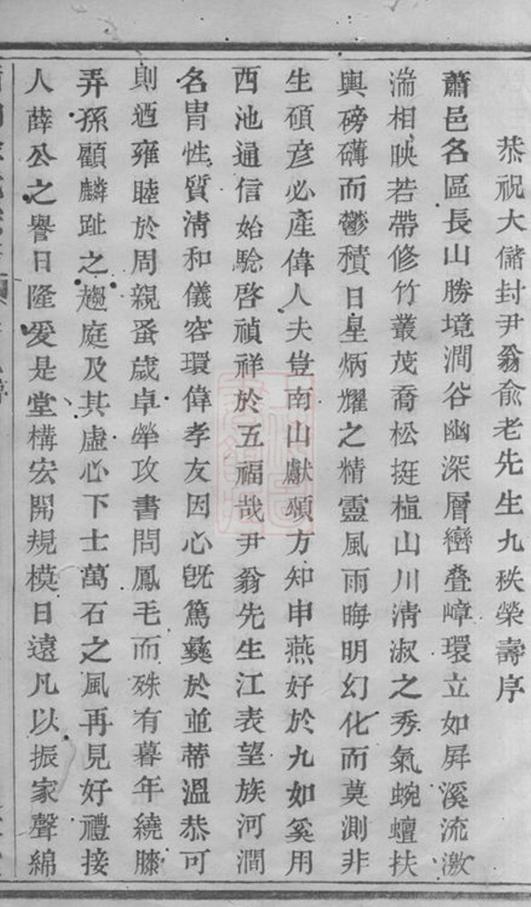 恭祝大儲封尹翁俞老先生九秩榮壽序
蕭邑名區長山勝境澗谷幽深層巒叠嶂環立如屏溪流激
湍相映若帶修竹叢茂喬松挺植山川淸淑之秀氣蜿蟺扶
輿磅礴而鬱積日星炳耀之精靈風雨晦明幻化而莫測非
生碩彥必產偉人夫豈南山獻頌方知申燕好於九如奚用
西池通信始騐啓禎祥於五福哉尹翁先生江表望族河澗
名胄性質淸和儀容環偉孝友因心旣篤彝於並蒂溫恭可
則迺雍睦於周親蚤歲卓犖攻書問鳳毛而殊有暮年繞膝
弄孫顧麟趾之趨庭及其虛心下士萬石之風再見好禮接
人薛公之譽日隆爰是堂構宏開規模日遠凡以振家聲綿